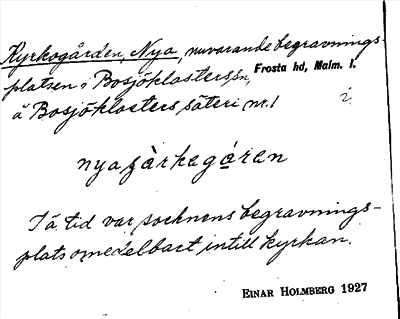 Kyrkogården, Nya, nuvarande begravnings-
platsen i Bosjöklosters sn, Frosta hd, Malm. l.
å Bosjöklosters säteri nr. 1
nya
I ä. tid var socknens begravnings-
plats omedelbart intill kyrkan.
EINAR HOLMBERG 1927